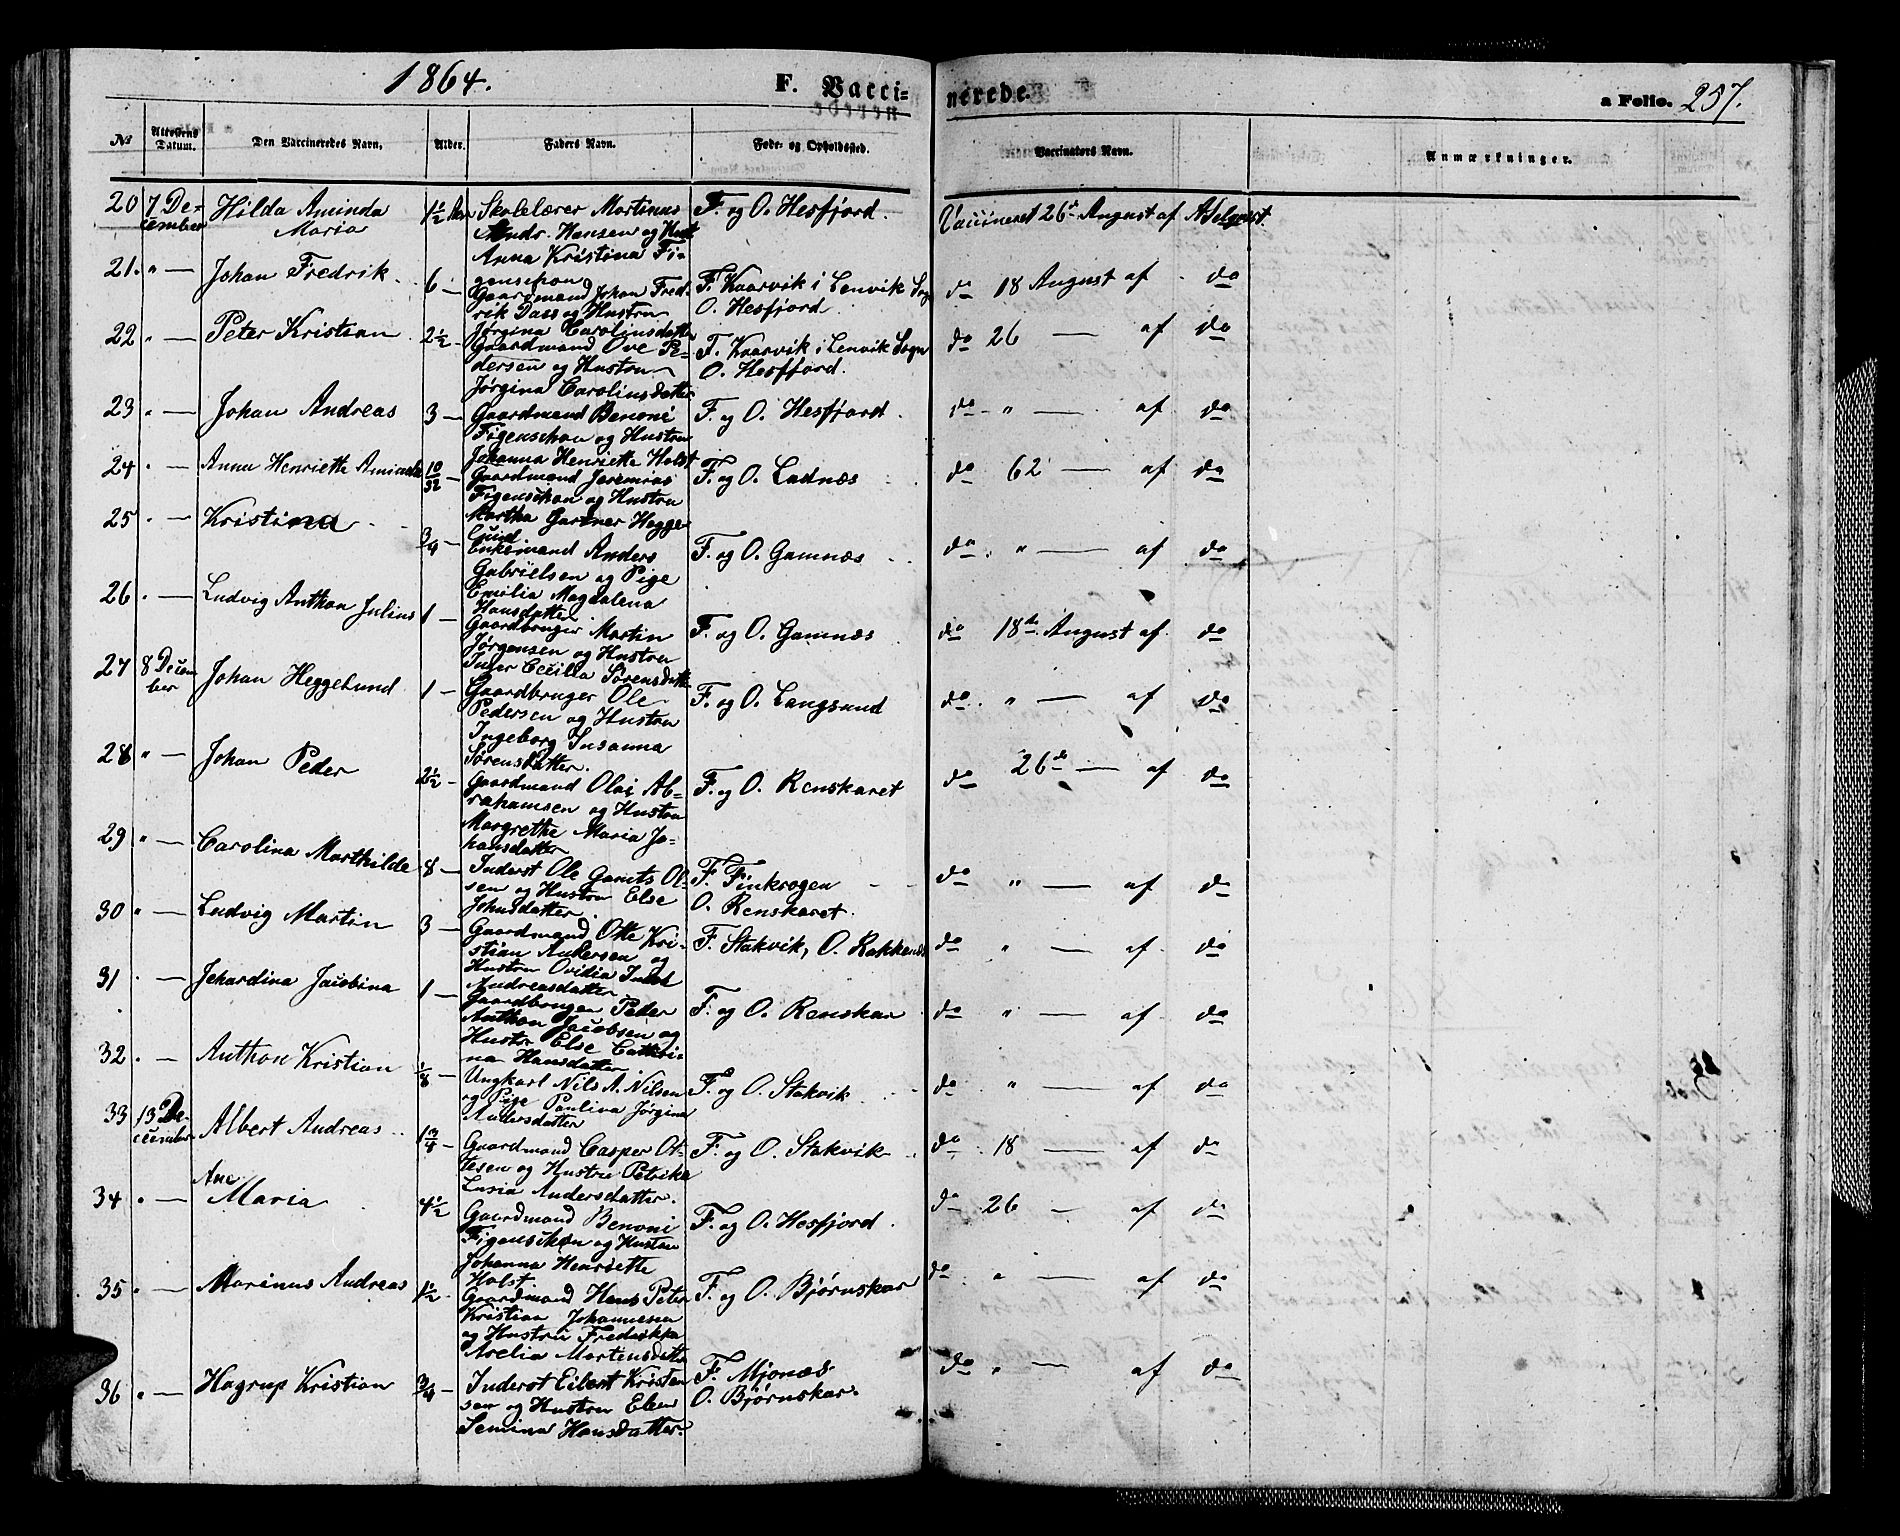 1864.
F. Vacci-
nerede.
a Folio. 257.
№ Attestens Datum. Den Vaccineredes Navn, Alder. Faders Navn. Føde- og Opholdssted. Vaccinators Navn. Anmærkninger.
20 7 De- Hilda Aminda 1½ Skolelærer Martinus F. og O. Hesfjord. Vaccineret 26de August af
cember Maria Andr. Hansen og Hust
Anna Kristina Fi-
21. " — Johan Fredrik genschou
6 — Gaardmand Johan Fred- F. Kaarvik i Lenvik Sogn do 18 August af do
rik Dass og Hustru O. Hesfjord
22 " — Peter Kristian Jørgina Carolinsdatter
2½ - Gaardmand Ove Pe- F. Kaarvik i Lenvik Sogn do 26 — af do
dersen og Hustru O. Hesfjord.
Jørgina Carolinsdatter
23 " — Johan Andreas 3 — Gaardmand Benoni F. og O. Hesfjord. do " — af do
Figenschou og Hustru
Johanna Henriette Holst
24 " — Anna Henriette Aminda 10/52 — Gaardmand Jeremias F. og O. Ladnæs do 62 — af do
Figenschou og Hustru
25 " — Kristina Martha Gartner Hegge
lund
¾ — Enkemand Anders F. og O. Gamnæs do " — af do
Gabrielsen og Pige
26 " — Ludvig Anthon Julius Emilia Magdalena
Hansdatter
1 — Gaardbruger Martin F. og O. Gamnæs do 18de August af do
Jørgensen og Hustru
27 8 Decem- Johan Heggelund Inger Cecilia Sørensdatter
ber 1 — Gaardbruger Ole F. og O. Langsund do " — af do
Pedersen og Hustru
Ingeborg Susanna
28 " — Johan Peder Sørensdatter.
2½ - Gaardmand Olai Ab- F. og O. Renskaret do 26de — af do
rahamsen og Hustru
Margrethe Maria Jo-
29 " — Carolina Marthilde hansdatter
8 — Inderst Ole Ol- F. Finkrogen do " — af do
sen og Hustru Else O. Renskaret.
30 " — Ludvig Martin Johnsdatter
3 — Gaardmand Otte Kri- F. Stakvik, O. do " — af do
stian Andersen og
Hustru Ovidia
31 " — Jehardina Jacobina Andreasdatter
1 — Gaardbruger Peder F. og O. Renskar do " — af do
Anthon Jacobsen og
Hustr Else Cathri-
32 " — Anthon Kristian na Hansdatter
⅛ — Ungkarl Nils A. Nilsen F. og O. Stakvik do " — af do
og Pige Paulina Jørgina
33 13 De- Albert Andreas Andersdatter
cember 1¾ — Gaardmand Casper Ot- F. og O. Stakvik do 18 — af do
tesen og Hustru Petrika
Ane Lusia Andersdatter.
34 " — Maria 4½ Gaardmand Benoni F. og O. Hesfjord. do 26 — af do
Figenschou og Hustru
Johanna Henriette
Holst
35 " — Marinus Andreas 1½ - Gaardmand Hans Peter F. og O. Bjørnskar do " — af do
Kristian Johannesen
og Hustru Fredrikka
Arelia Mortensdatter
36 " — Hagrup Kristian ¾ — Inderst Eilert Kristen F. Mjonæs do " — af do
sen og Hustru Elen O. Bjørnskar.
Semina Hansdatter.